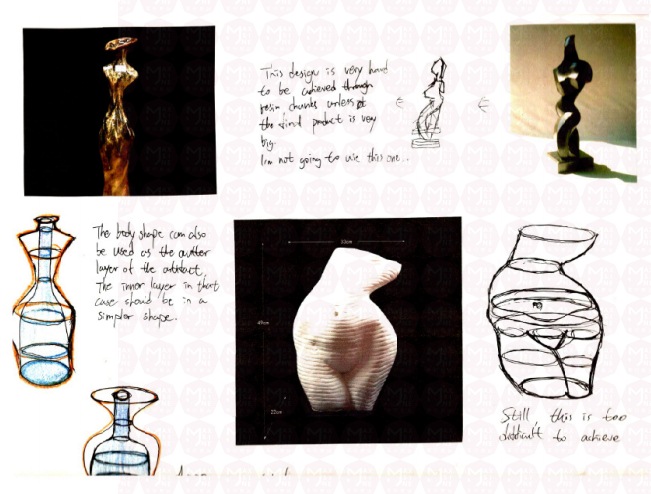 This design is very hard
to be achieved through
resin chunks unless
the final product is very
big.
I'm not going to use this one..
The body shape can also
be used as the outter
layer of the artifact.
The inner layer in that
case should be in a
simpler shape.
33cm
49cm
22cm
Still, this is too
difficult to achieve